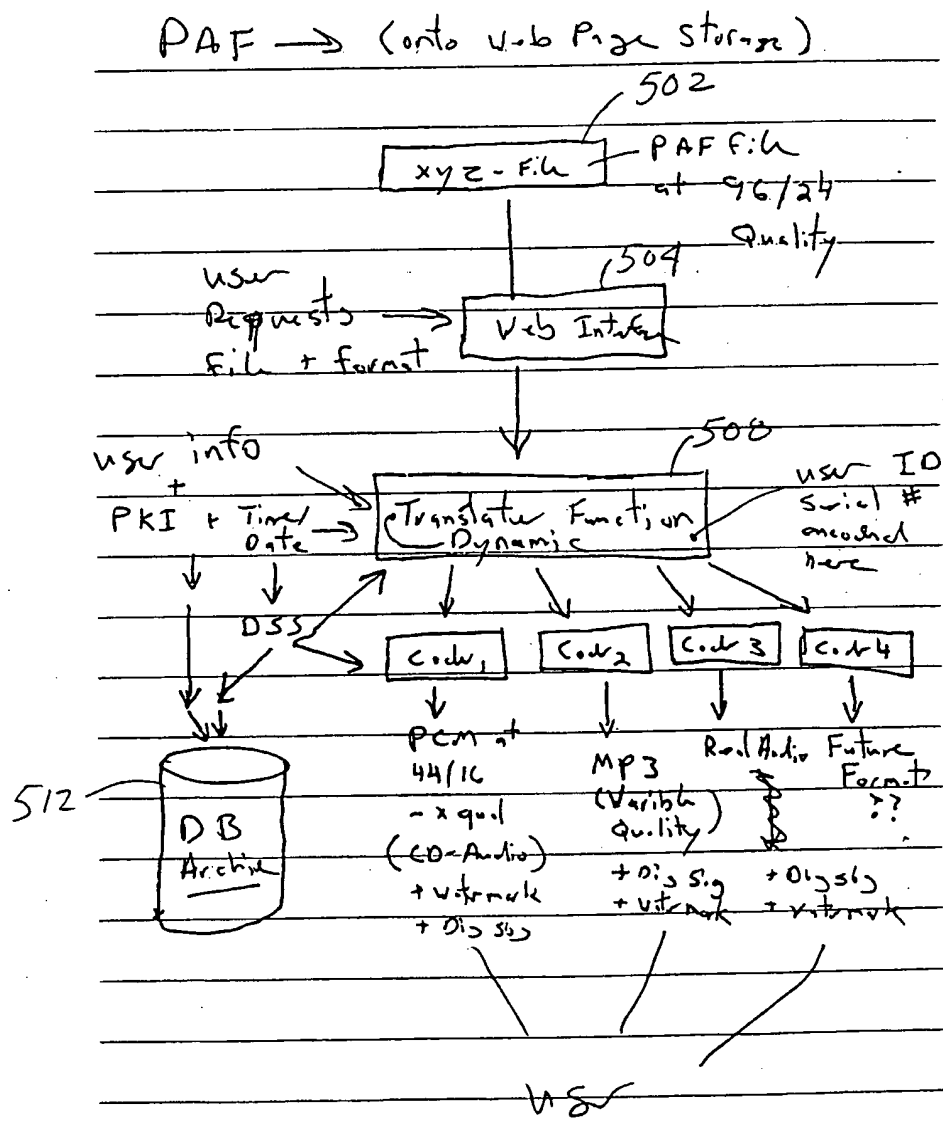 PAF → (onto Web Page Storage)
502
xyz-File
PAF file
at 96/24
Quality
504
User
Requests
File + format
Web Interface
508
user info
+
PKI + Time/
Date
Translator Function
Dynamic
user ID
Serial #
encoded
here
DSS
Coder 1
Coder 2
Coder 3
Coder 4
512
DB
Archive
PCM at
44/16
- x qual
(CD-Audio)
+ watermark
+ Dig sig
MP3
(Varible
Quality)
+ Dig sig
+ watermark
Real Audio
Future
Format
??
+ Dig sig
+ watermark
user